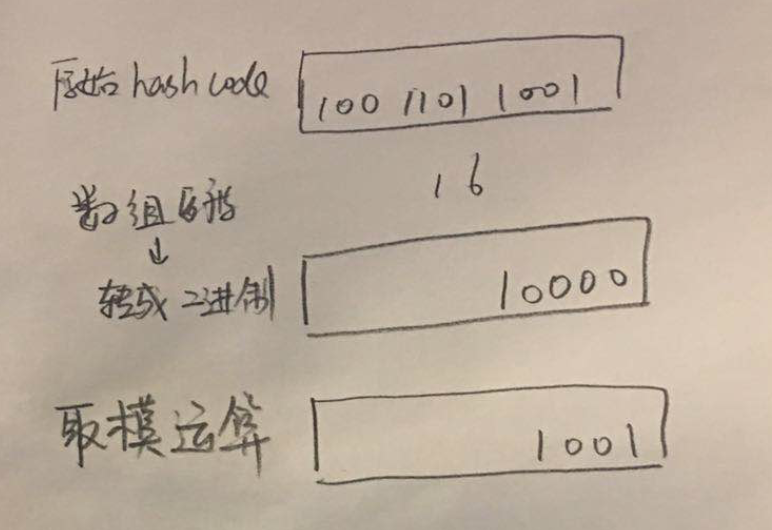 原始hash code 100 1101 1001
数组长度 16
↓
转成二进制 10000
取模运算 1001